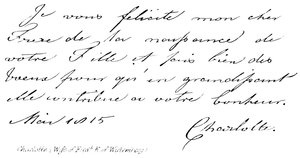 Je vous felicite mon cher
Frere de la naissance de
votre Fille et fais bien des
voeux pour qu'en grandissant
elle contribue a votre bonheur.
Mai 1815
Charlotte.
Charlotte (Wife of Fredk. K. of Wirtemberg)